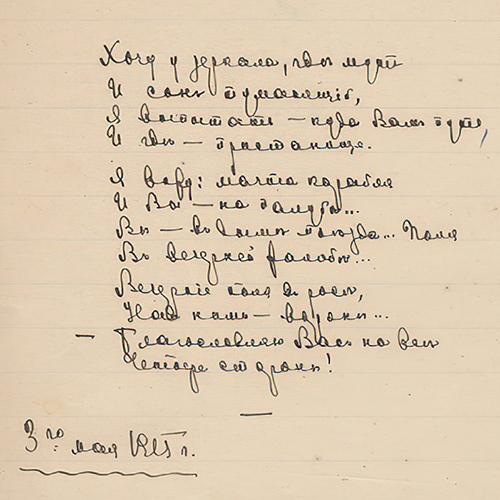 Хочу у зеркала, где муть
И сонъ туманящій,
Я выпытать — куда Вамъ путь,
И гдѣ — пристанище.
Я вижу: мачта корабля
И Вы — на палубѣ...
Вы — въ дымѣ поѣзда... Поля
Въ вечерней жалобѣ...
Вечернія поля въ росѣ,
Надъ ними — вороны...
— Благословляю Васъ на всѣ
Четыре стороны!
3го мая 1915 г.